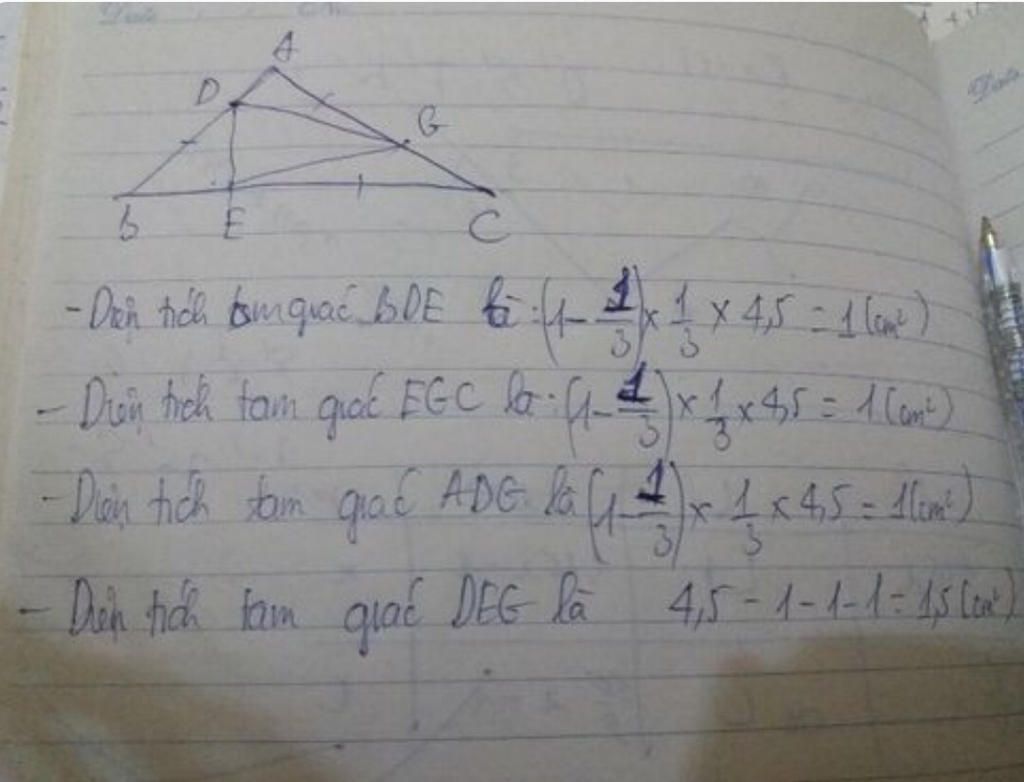 A
D
G
B E C
- Diện tích tam giác BDE là: (1 - 1/3) x 1/3 x 4,5 = 1 (cm²)
- Diện tích tam giác EGC là: (1 - 1/3) x 1/3 x 4,5 = 1 (cm²)
- Diện tích tam giác ADG là (1 - 1/3) x 1/3 x 4,5 = 1 (cm²)
- Diện tích tam giác DEG là 4,5 - 1 - 1 - 1 = 1,5 (cm²)